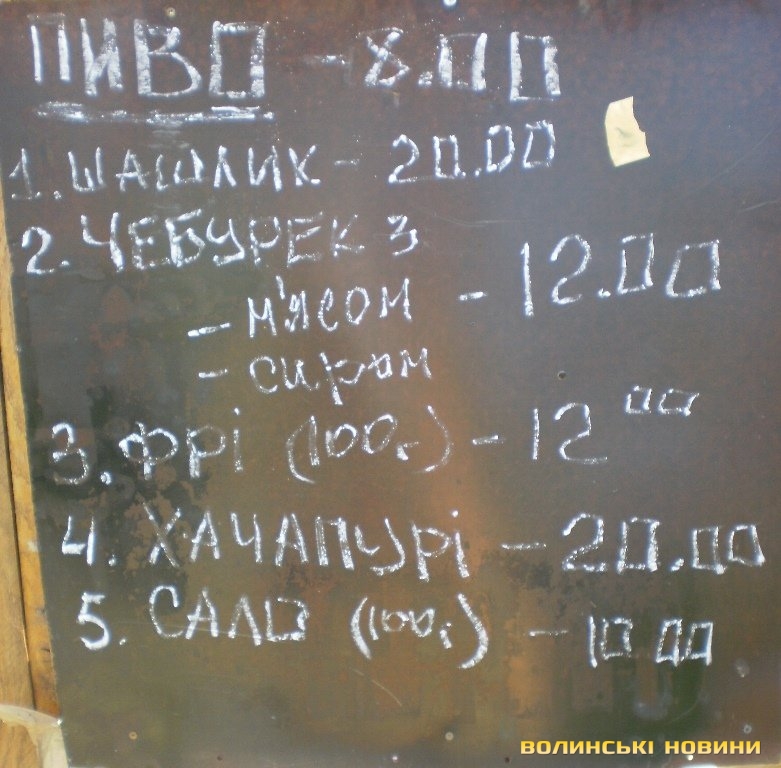 ПИВО - 8.00
1. ШАШЛИК - 20.00
2. ЧЕБУРЕК З
- М'ЯСОМ - 12.00
- сиром
3. ФРІ (100г) - 12 00
4. ХАЧАПУРІ - 20.00
5. САЛО (100г) - 10.00
ВОЛИНСЬКІ НОВИНИ